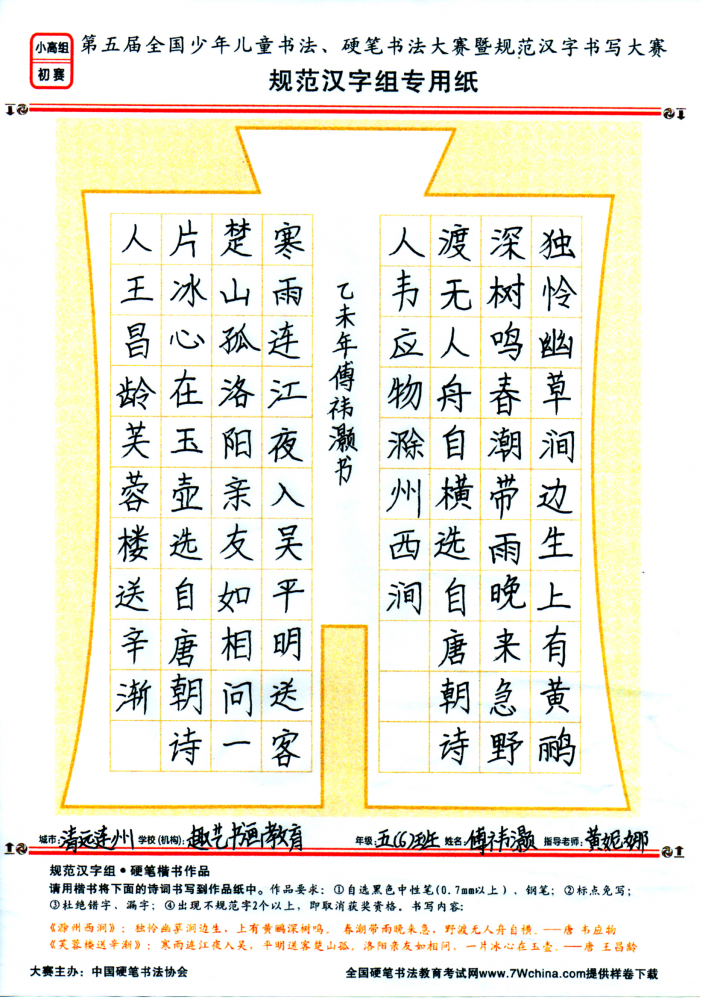 小高组
初赛
第五届全国少年儿童书法、硬笔书法大赛暨规范汉字书写大赛
规范汉字组专用纸
独怜幽草涧边生上有黄鹂
深树鸣春潮带雨晚来急野
渡无人舟自横选自唐朝诗
人韦应物滁州西涧
乙未年傅祎灏书
寒雨连江夜入吴平明送客
楚山孤洛阳亲友如相问一
片冰心在玉壶选自唐朝诗
人王昌龄芙蓉楼送辛渐
城市:清远连州 学校(机构):趣艺书画教育 年级:五(6)班 姓名:傅祎灏 指导老师:黄妮娜
规范汉字组•硬笔楷书作品
请用楷书将下面的诗词书写到作品纸中。作品要求：①自选黑色中性笔(0.7mm以上)、钢笔；②标点免写；
③杜绝错字、漏字；④出现不规范字2个以上，即取消获奖资格。书写内容：
《滁州西涧》：独怜幽草涧边生，上有黄鹂深树鸣。 春潮带雨晚来急，野渡无人舟自横。——唐 韦应物
《芙蓉楼送辛渐》：寒雨连江夜入吴，平明送客楚山孤。洛阳亲友如相问，一片冰心在玉壶。——唐 王昌龄
大赛主办：中国硬笔书法协会 全国硬笔书法教育考试网www.7Wchina.com提供样卷下载